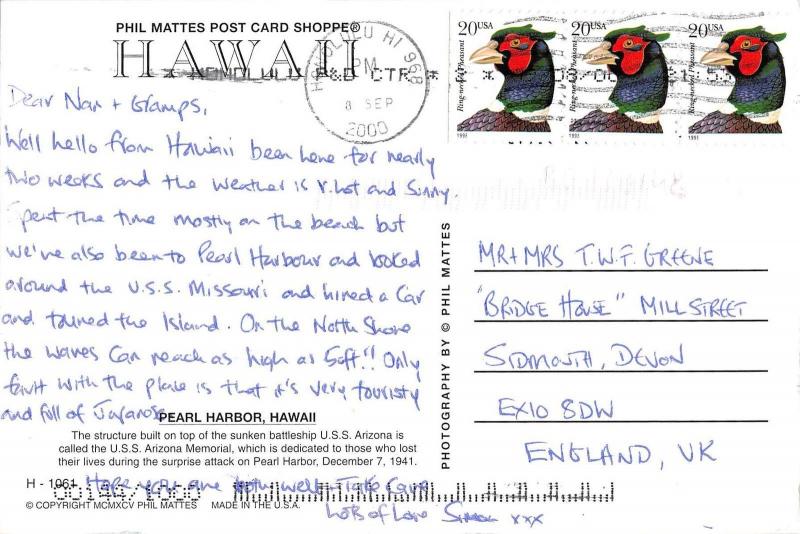 PHIL MATTES POST CARD SHOPPE®
HAWAII
HONOLULU P&D CTR
HONOLULU HI 968
PM
8 SEP
2000
20USA
Ring-necked Pheasant
1991
20USA
Ring-necked Pheasant
1991
20USA
Ring-necked Pheasant
1991
Dear Nan + Gramps,
Well hello from Hawaii been here for nearly
two weeks and the weather is v.hot and Sunny.
Spent the time mostly on the beach but
we've also been to Pearl Harbour and looked
around the U.S.S. Missouri and hired a Car
and toured the Island. On the North Shore
the waves can reach as high as 50ft!! Only
fault with the place is that it's very touristy
and full of Japanese
PEARL HARBOR, HAWAII
The structure built on top of the sunken battleship U.S.S. Arizona is
called the U.S.S. Arizona Memorial, which is dedicated to those who lost
their lives during the surprise attack on Pearl Harbor, December 7, 1941.
Hope you are both well - Take Care
Lots of Love Simon xxx
H - 1061
© COPYRIGHT MCMXCV PHIL MATTES MADE IN THE U.S.A.
PHOTOGRAPHY BY © PHIL MATTES
MR + MRS T.W.F. GREENE
"BRIDGE HOUSE" MILL STREET
SIDMOUTH, DEVON
EX10 8DW
ENGLAND, UK